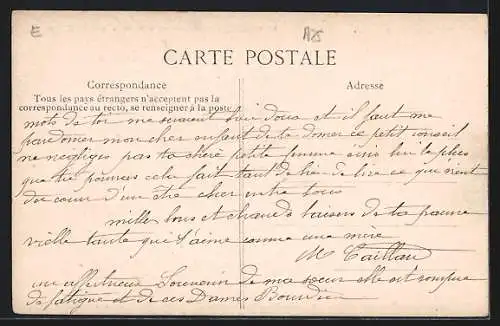 E
CARTE POSTALE
Correspondance
Adresse
Tous les pays étrangers n'acceptent pas la
correspondance au recto, se renseigner à la poste
mots de toi me seraient bien doux et il faut me
pardonner mon cher enfant de te donner ce petit conseil
ne négliges pas ta chère petite femme écris lui le plus
que tu pourras cela fait tant de bien de lire ce qui vient
du coeur d'un être cher entre tous
mille bons et chauds baisers de ta pauvre
vieille tante qui t'aime comme une mère
M Taillan
un affectueux Souvenir de ma soeur elle est rompue
de fatigue et de ces Dames